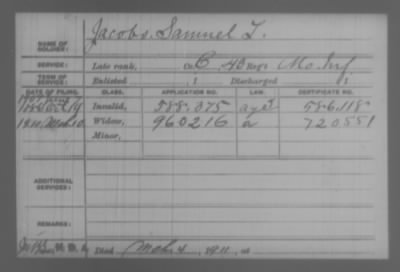 NAME OF SOLDIER: Jacobs, Samuel T.
SERVICE: Late rank, Co. C, 46 Reg't Mo. Inf.
TERM OF SERVICE: Enlisted , 1 Discharged , 1
DATE OF FILING. CLASS. APPLICATION NO. LAW. CERTIFICATE NO.
Invalid, 588.075 586.118
1911 Mch 10 Widow, 960216 a 720551
Minor,
ADDITIONAL SERVICES:
REMARKS:
Died Mch 4, 1911, at